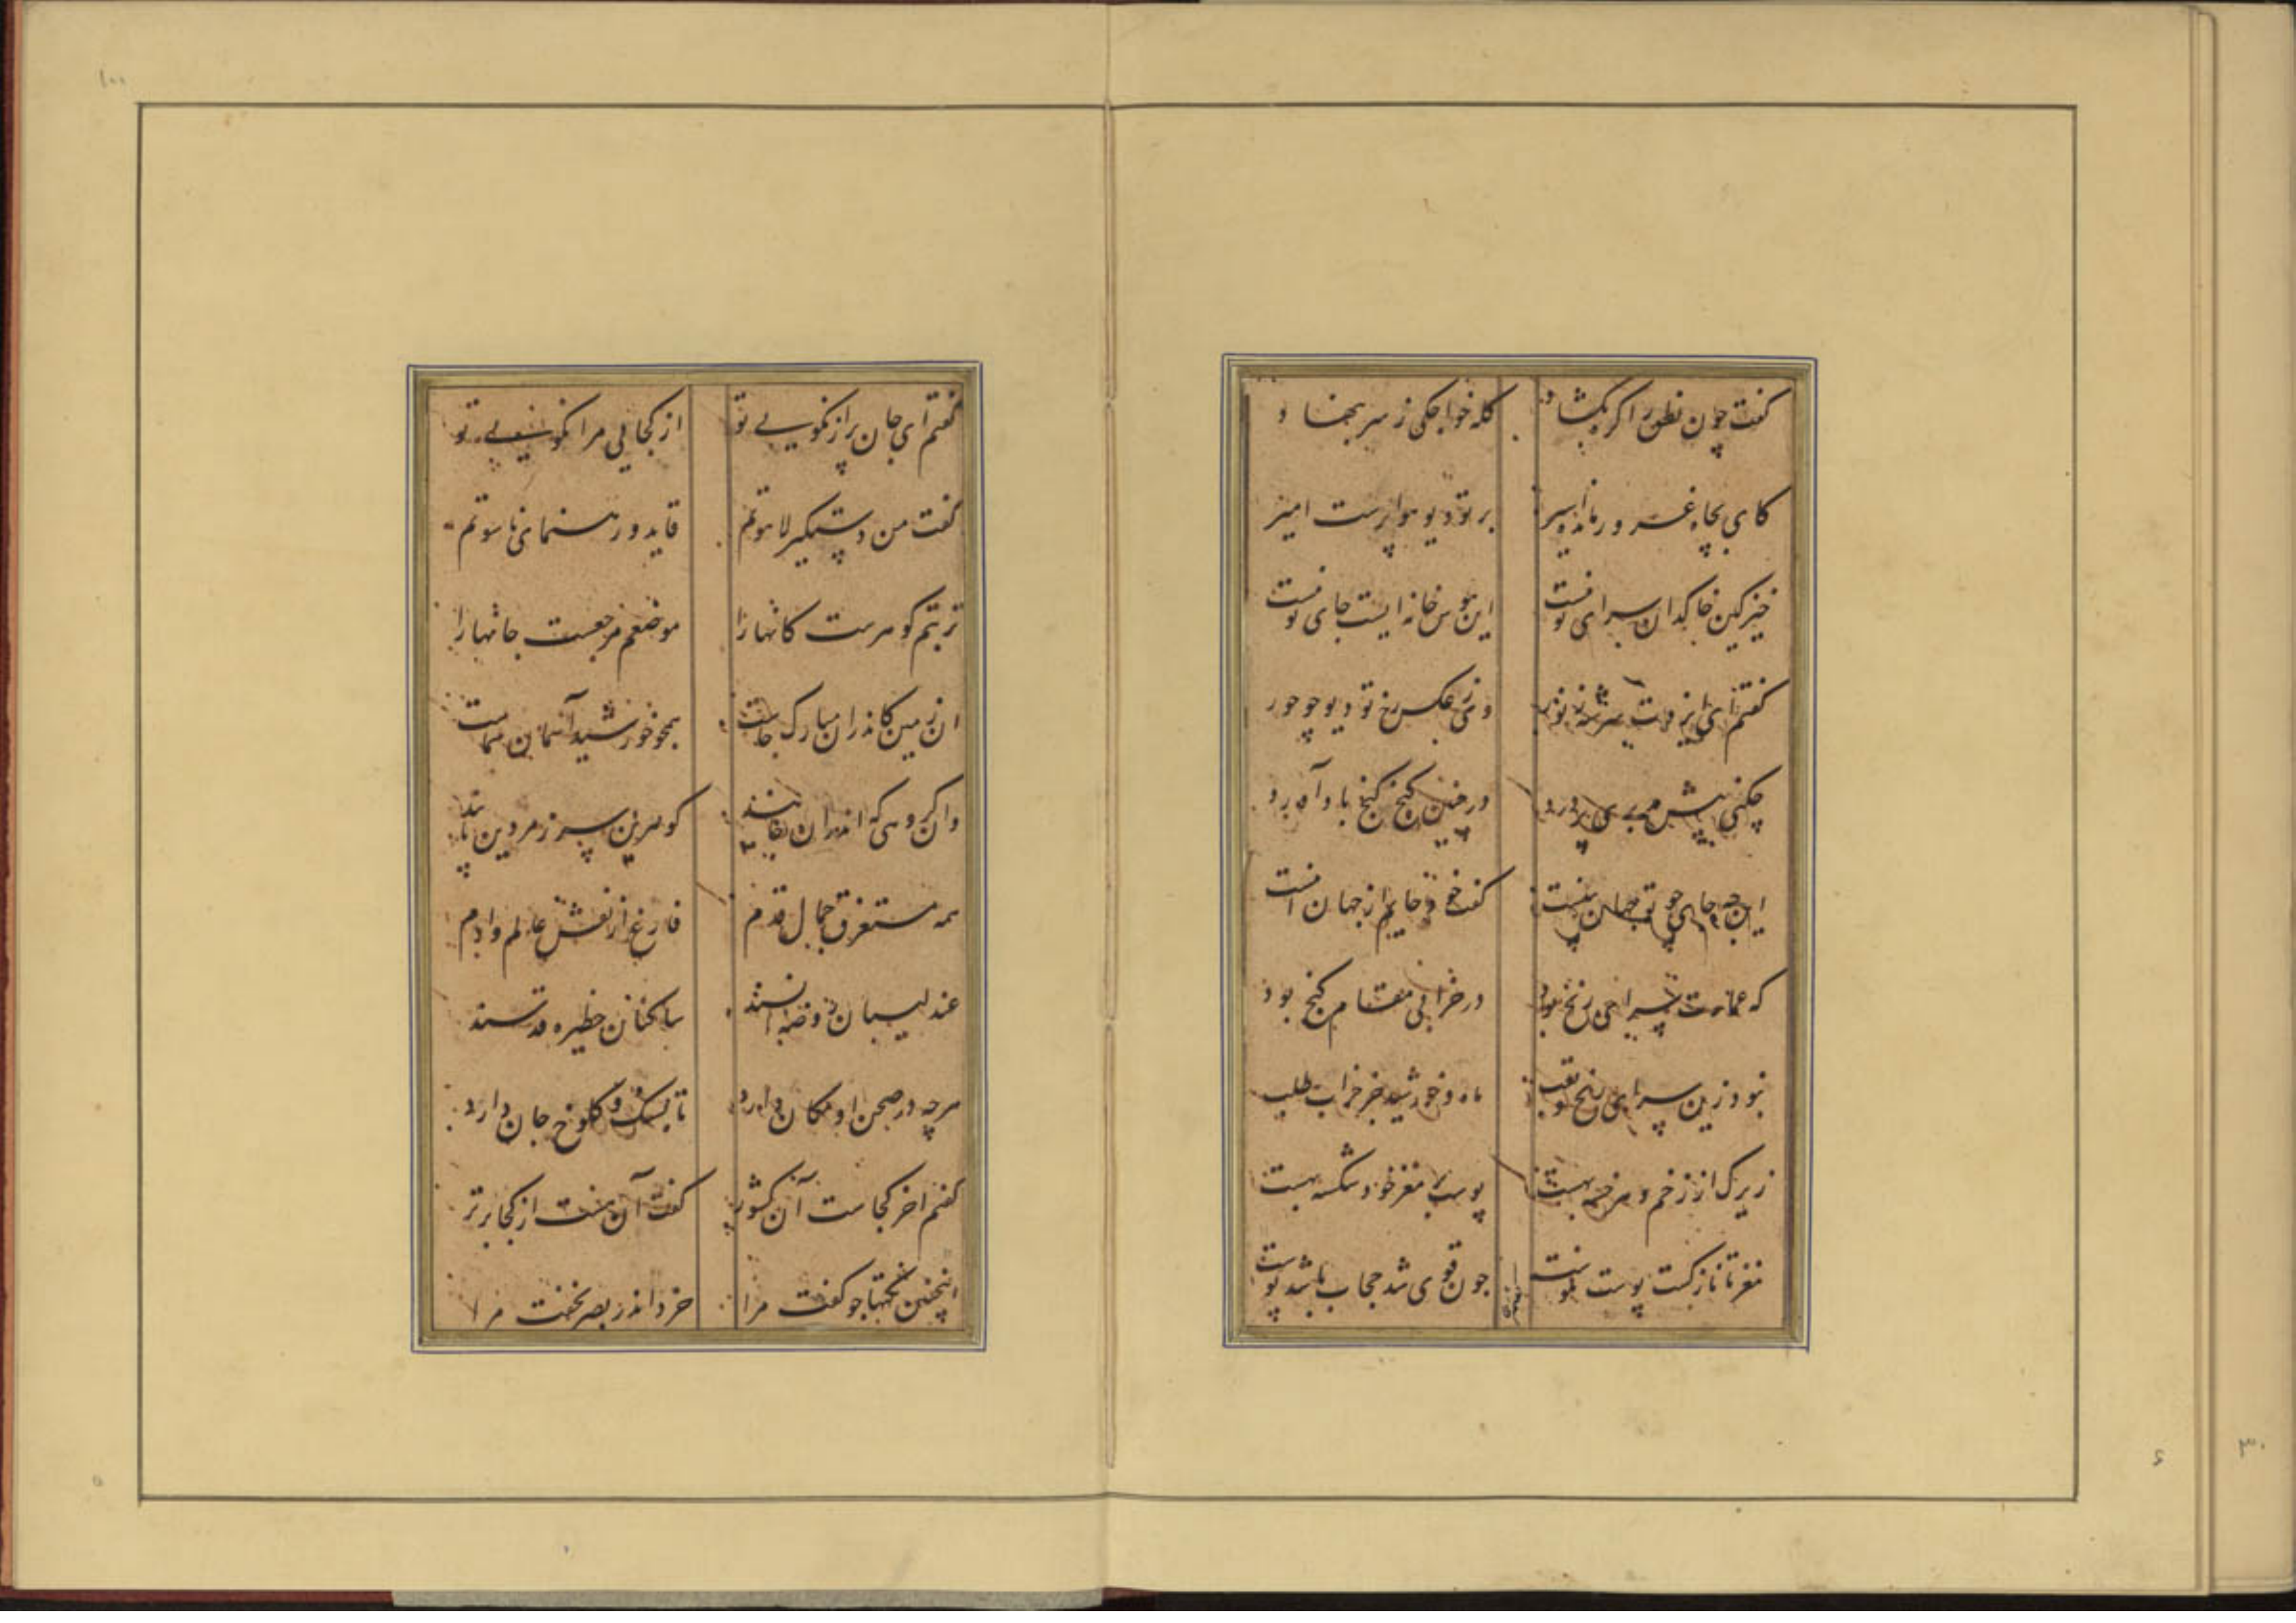 گفت چون نطق را کره بکشاد
کله خواجکی ز سر بنهاد
کای بجاه غرور مانده اسیر
بر تو دیو هوا پرست امیر
خیز کین خاکدان سرای تو نیست
این هوس خانه ایست جای تو نیست
گفتم ای ایزدت سرشته ز نور
وی ز عکس رخ تو دیو چو حور
چکنی پیش من بی پر درد
در چنین کنج کنج باد آورد
این چه جای چو تو جهان بینست
گفت خود جایم از جهان اینست
که عمارت سرای رنج بود
در خرابی مقام کنج بود
نبود زین سرای رنج و تعب
ماه و خورشید جز خراب طلب
زیرک از زخم و مرغ خسته بهست
پوست بر مغز خود شکسته بهست
مغز تا نازکست پوست نکوست
چون قوی شد حجاب باشد پوست
گفتم ای جان پر از نکویی تو
از کجایی مرا نکویی تو
گفت من دستگیر لاهوتم
قاید و رهنمای ناسوتم
تربتم گوهرست کانها را
موضعم مرجعست جانها را
ان زمین کاندران مبارک جاست
همچو خورشید آسمان سماست
وان گروهی که اندران
گوهرین سر زمردین پایند
همه مستغرق جمال قدم
فارغ از نقش عالم و ادم
عندلیبان روضه انسند
ساکنان حظیره قدسند
هرچه در صحن او مکان دارد
تا بسنک و کلوخ جان دارد
گفتم اخر کجاست آن کشور
گفت آن هست از کجا برتر
اینچنین نکتها چو گفت مرا
خرد اندر بصر بخفت مرا
۱۰۰
۳۰